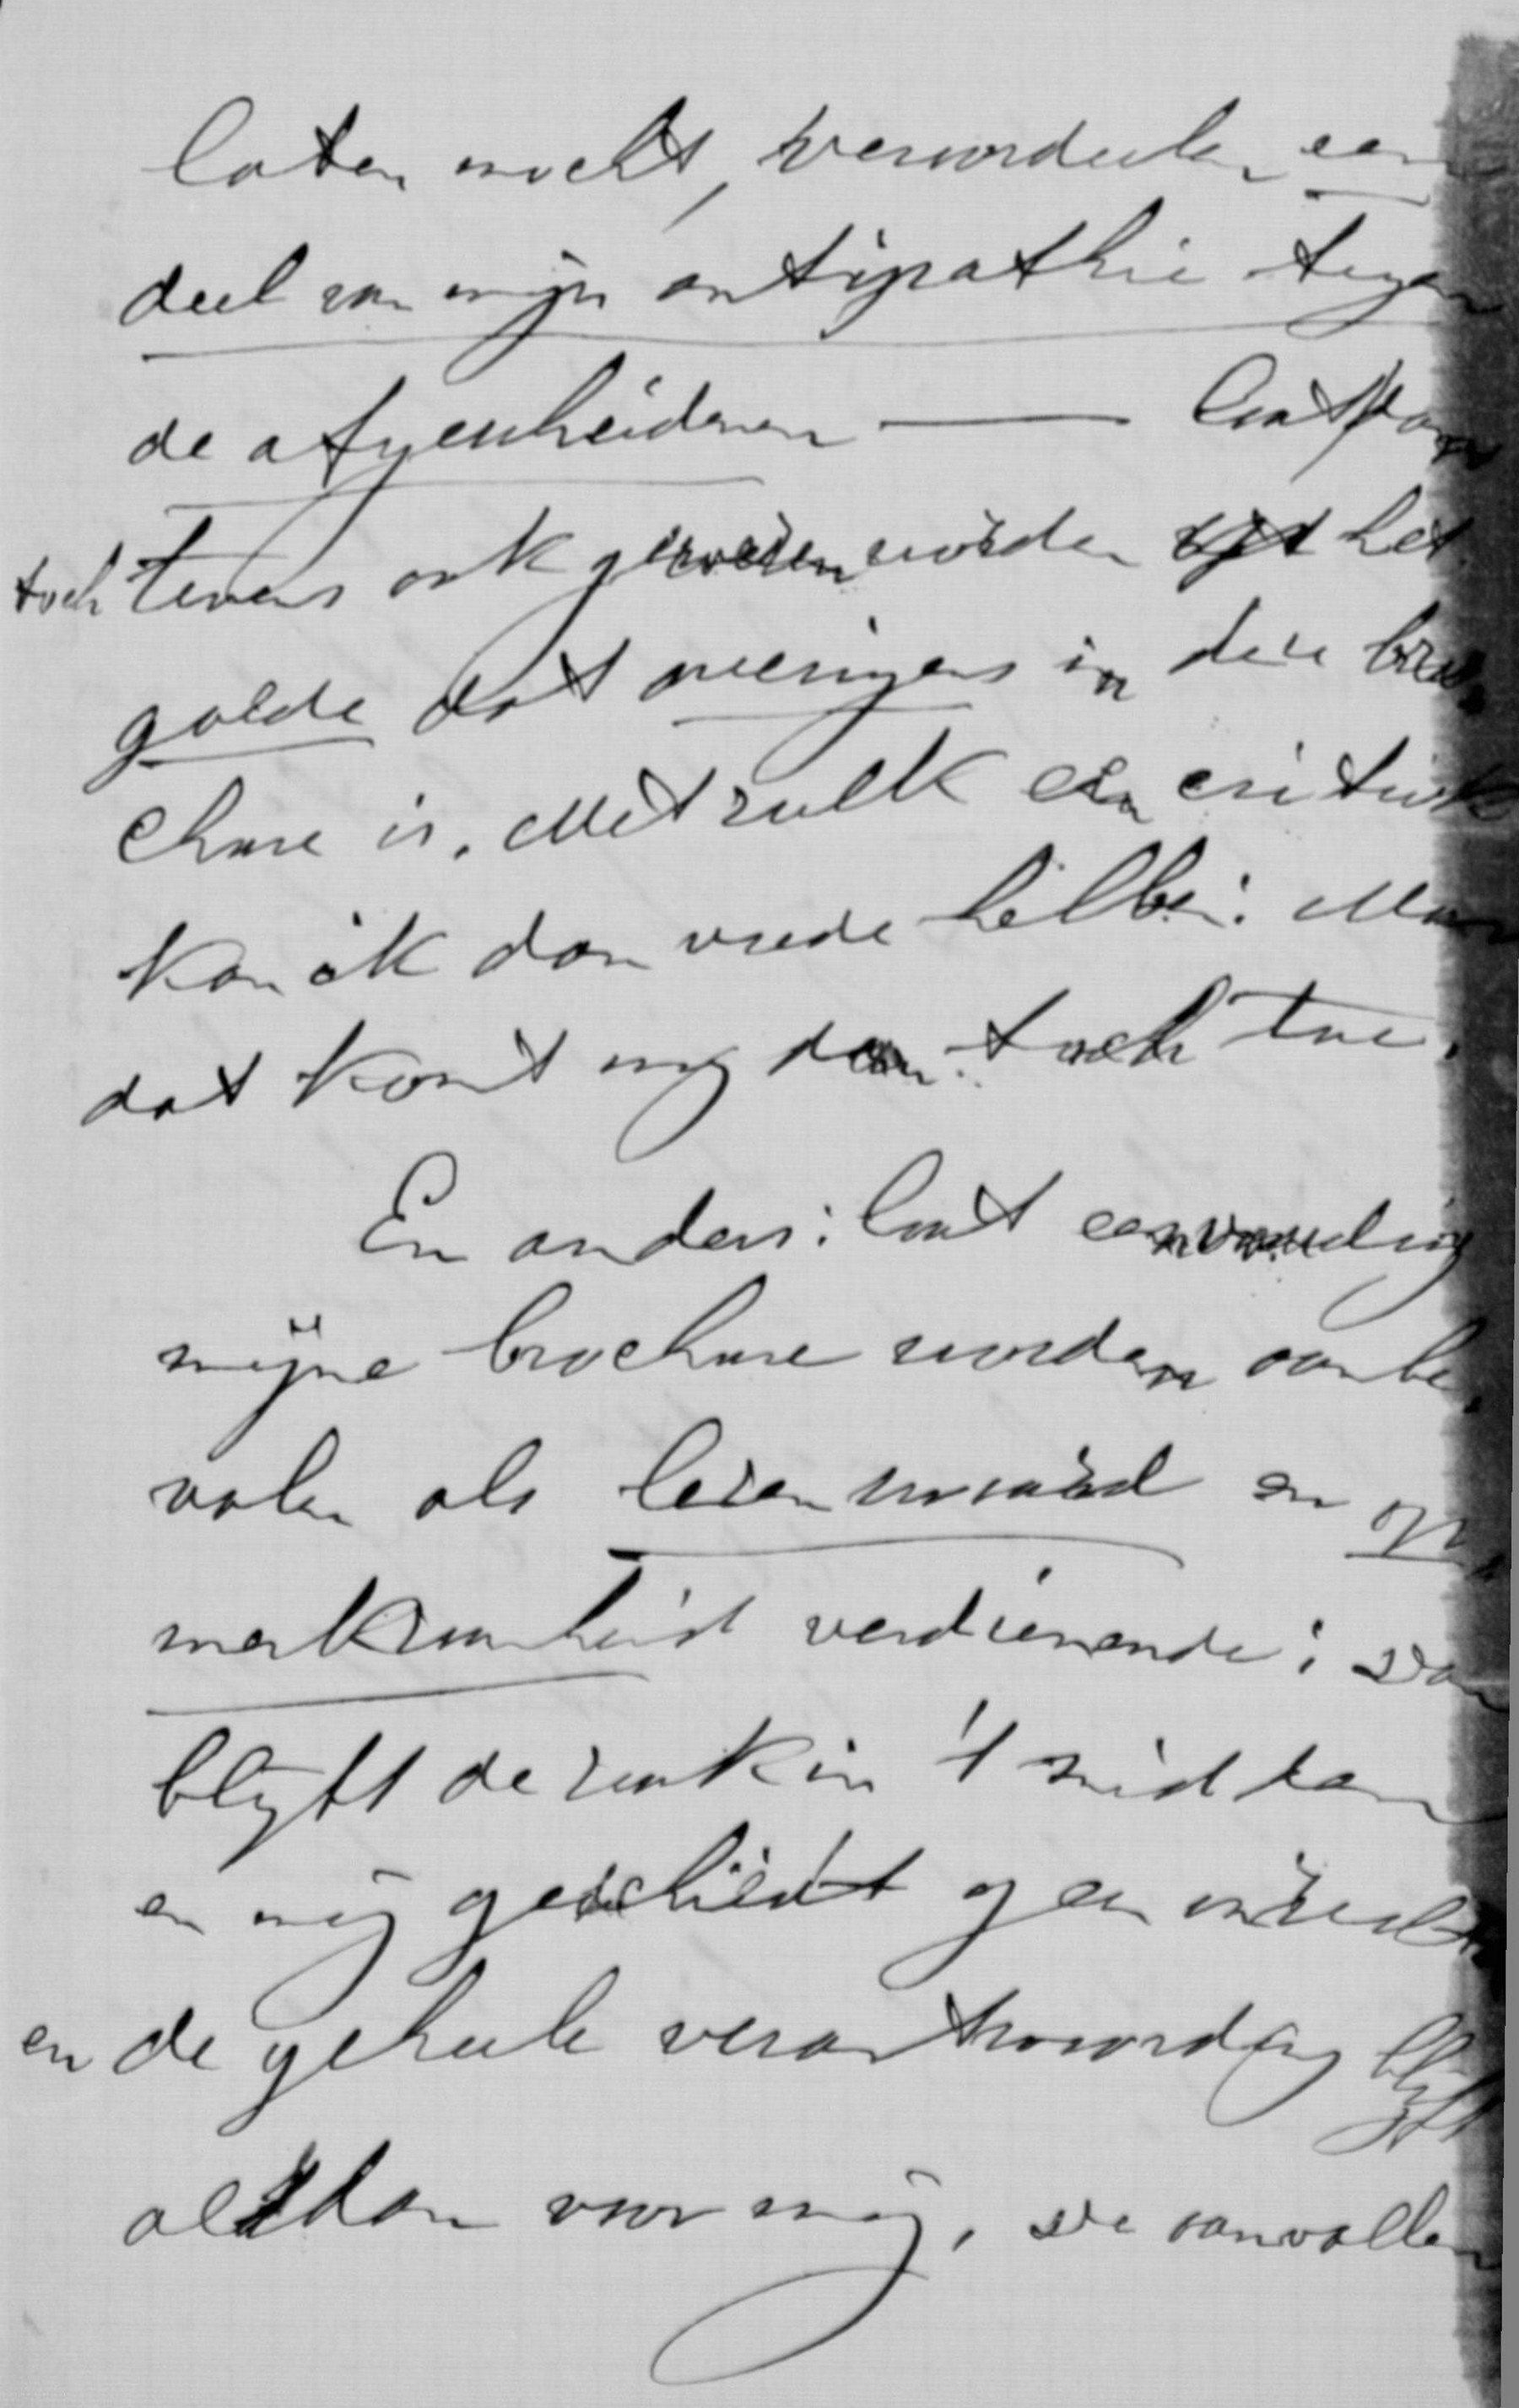 laten mocht, veroordeelen een
deel van mijn antipathie tegen
de afgescheidenen — laat dan
toch tevens ook gewezen worden op het
goede dat overigens in deze bro-
chure is. Met zulk een critiek
kan ik dan vrede hebben. Maar
dat komt mij dan toch toe.
En anders: laat eenvoudig
mijne brochure worden aanbe-
volen als lezenswaard en op-
merkzaamheid verdienende; dan
blijft de zaak in 't midden
en mij geschiedt geen onrecht
en de geheele verantwoording blijft
alsdan voor mij. De aanvallen